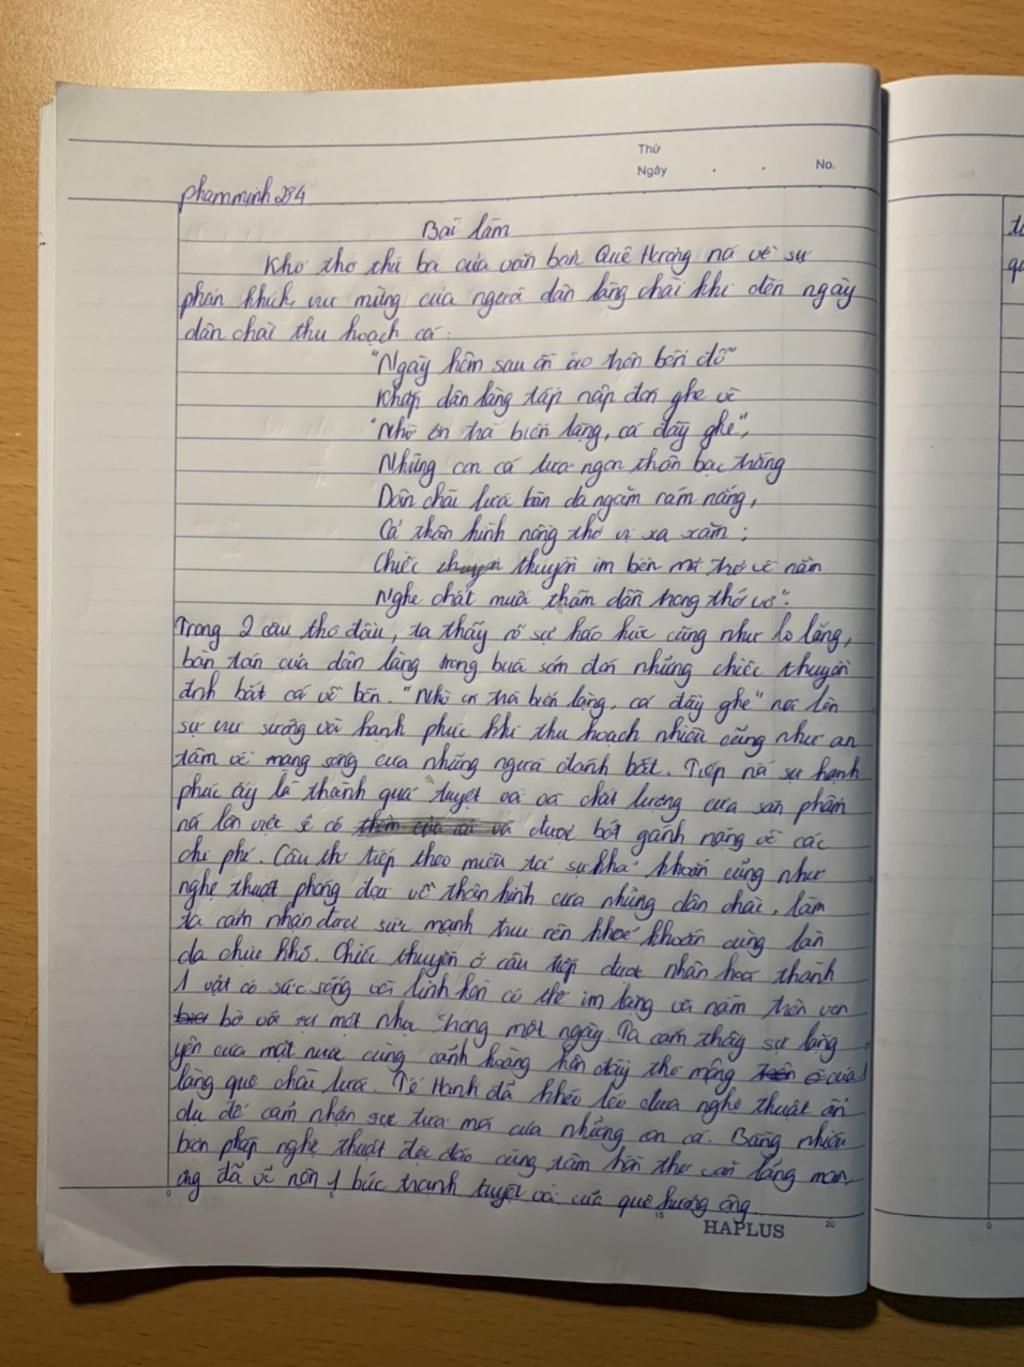 Thứ
Ngày . . No.
phamminh284
Bài làm
Khổ thơ thứ ba của văn bản Quê Hương nó về sự
phấn khích, vui mừng của người dân làng chài khi đến ngày
dân chài thu hoạch cá:
"Ngày hôm sau ồn ào trên bến đỗ"
Khắp dân làng tấp nập đón ghe về
"Nhờ ơn trời biển lặng, cá đầy ghe",
Những con cá tươi ngon thân bạc trắng
Dân chài lưới làn da ngăm rám nắng,
Cả thân hình nồng thở vị xa xăm;
Chiếc thuyền im bến mỏi trở về nằm
Nghe chất muối thấm dần trong thớ vỏ".
Trong 2 câu thơ đầu, ta thấy rõ sự háo hức cũng như lo lắng,
bàn tán của dân làng trong buổi sớm đón những chiếc thuyền
đánh bắt cá về bến. "Nhờ ơn trời biển lặng, cá đầy ghe" nói lên
sự vui sướng và hạnh phúc khi thu hoạch nhiều cũng như an
tâm về mạng sống của những người đánh bắt. Tiếp nối sự hạnh
phúc ấy là thành quả tuyệt vời và chất lượng của sản phẩm
nói lên việc sẽ có được bớt gánh nặng về các
chi phí. Câu thơ tiếp theo miêu tả sự khỏe khoắn cũng như
nghệ thuật phóng đại về thân hình của những dân chài, làm
ta cảm nhận được sức mạnh trui rèn khoẻ khoắn cùng làn
da chịu khó. Chiếc thuyền ở câu tiếp được nhân hoá thành
1 vật có sức sống với linh hồn có thể im lặng và nằm trên ven
bờ với sự mệt nhọc trong một ngày. Ta cảm thấy sự lắng
yên của mặt nước cùng cảnh hoàng hôn đầy thơ mộng của
làng quê chài lưới. Tế Hanh đã khéo léo đưa nghệ thuật ẩn
dụ để cảm nhận sự tươi mới của những con cá. Bằng nhiều
biện pháp nghệ thuật độc đáo cùng tâm hồn thơ văn lãng mạn,
ông đã vẽ nên 1 bức tranh tuyệt vời của quê hương ông.
HAPLUS